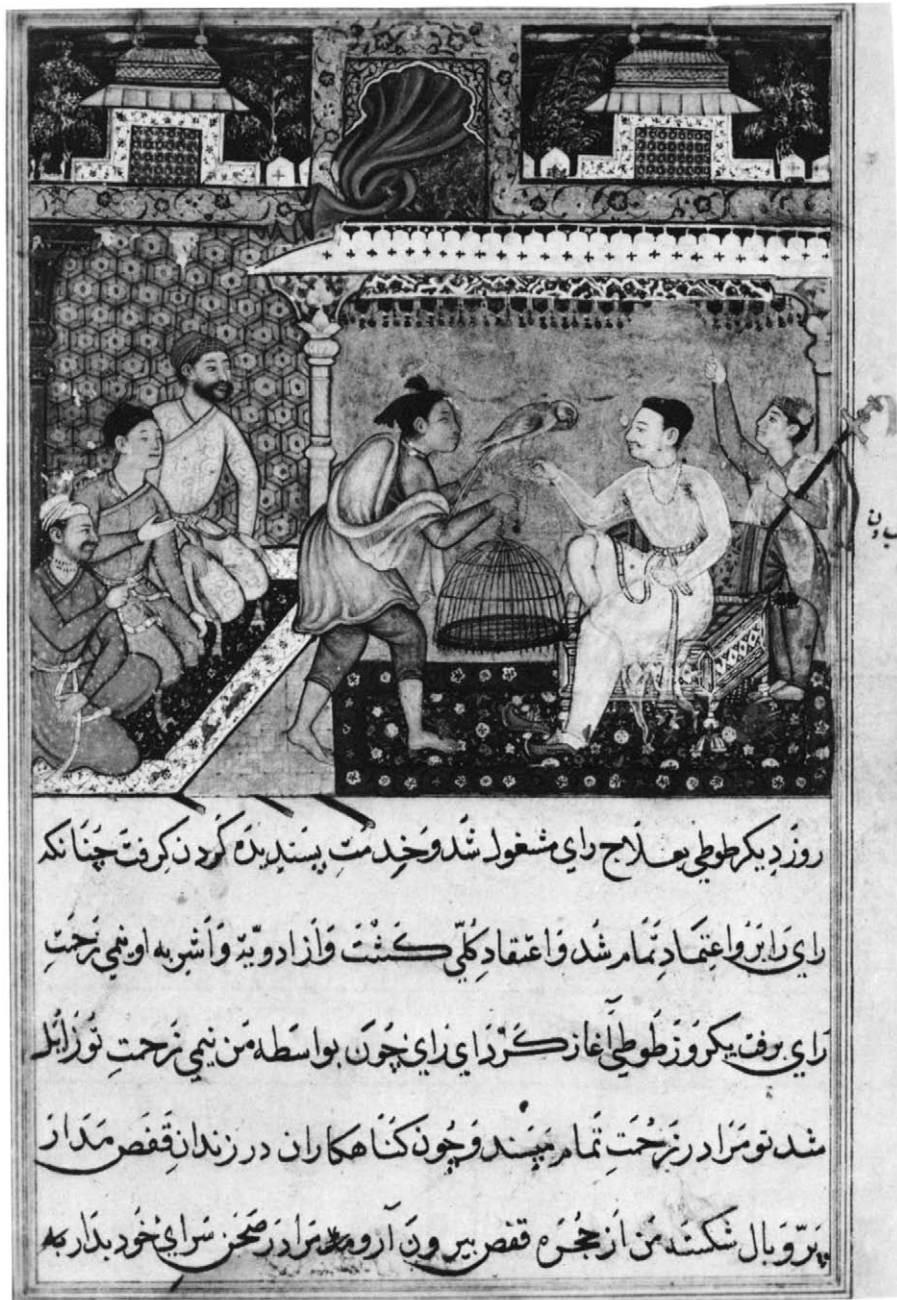 روز دیکر طوطی بعلاج رای مشغول شد و خدمت پسندیده کردن کرفت چنانکه
رای را برو اعتماد تمام شد و اعتقاد کلی کشت و از ادویه و اشربه او نیمی زحمت
رای برفت یکروز طوطی آغاز کرد ای رای چون بواسطه من نیمی زحمت تو زایل
شد تو مرا در زحمت تمام مپسند و چون کناهکاران در زندان قفص مدار
پر و بال شکسته من از حجره قفص بیرون آر و مرا در صحن سرای خود بدار به